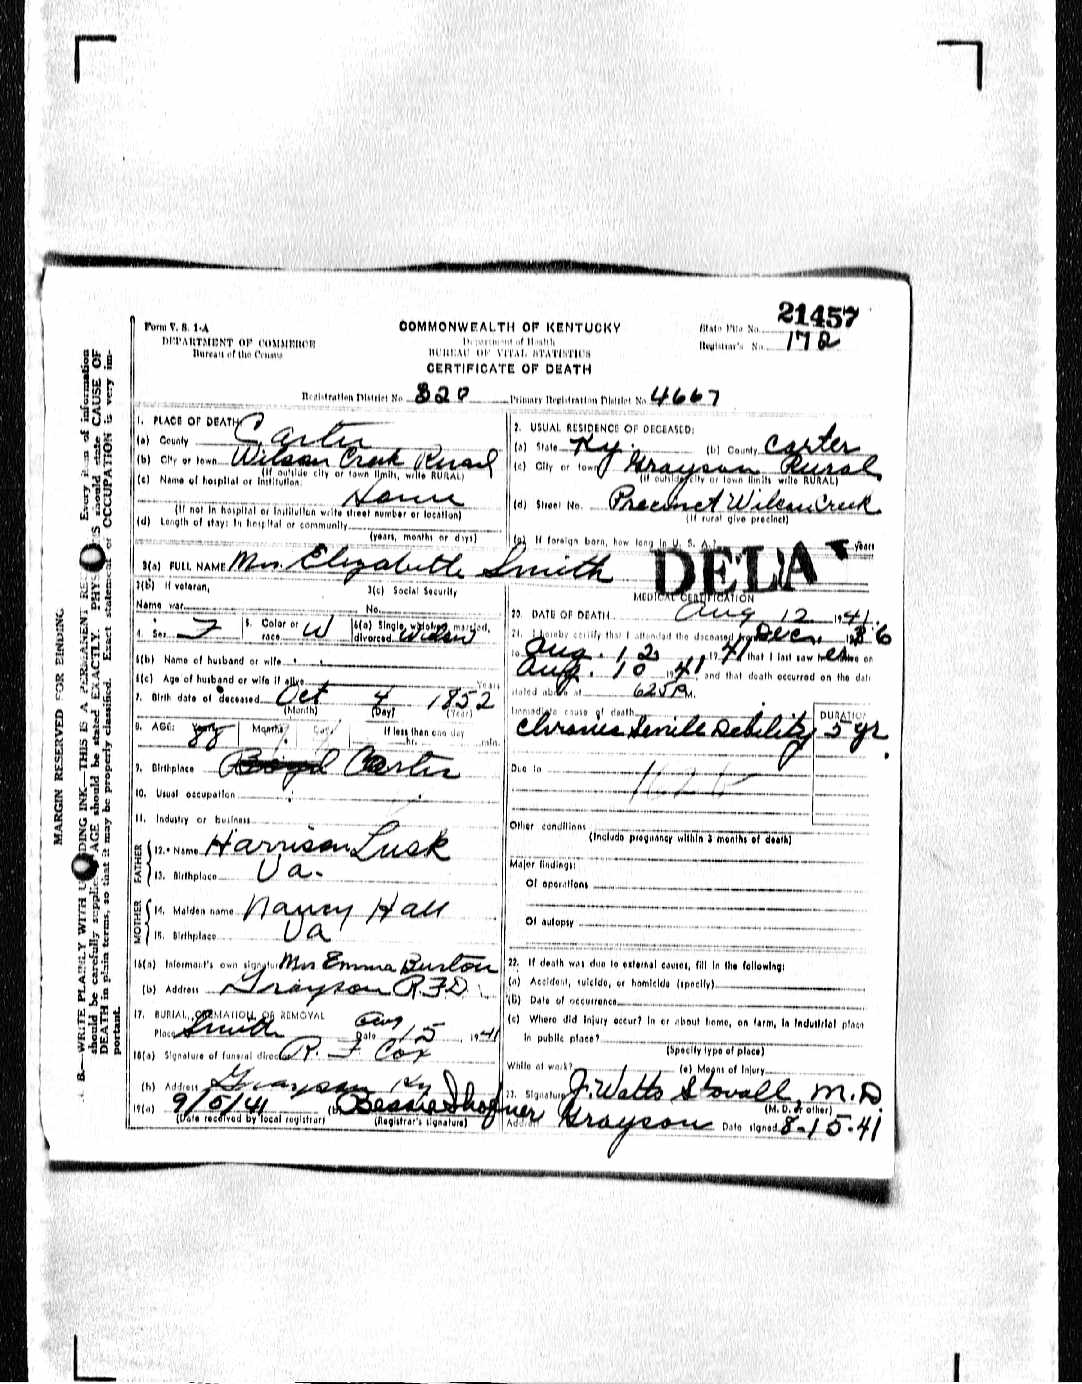 21457
Form V. S. 1-A
COMMONWEALTH OF KENTUCKY
State File No.
DEPARTMENT OF COMMERCE
Department of Health
Registrar's No. 172
Bureau of the Census
BUREAU OF VITAL STATISTICS
CERTIFICATE OF DEATH
Registration District No 820 Primary Registration District No 4667
1. PLACE OF DEATH
(a) County Carter
(b) City or town Wilson Creek Rural
(If outside city or town limits, write RURAL)
(c) Name of hospital or institution:
Home
(If not in hospital or institution write street number or location)
(d) Length of stay: In hospital or community
(years, months or days)
2. USUAL RESIDENCE OF DECEASED:
(a) State Ky. (b) County Carter
(c) City or town Grayson Rural
(If outside city or town limits write RURAL)
(d) Street No. Precinct Wilson Creek
(If rural give precinct)
(e) If foreign born, how long in U. S. A.? years
DELA
3(a) FULL NAME Mrs. Elizabeth Smith
3(b) If veteran, 3(c) Social Security
Name war No.
4. Sex F 5. Color or race W 6(a) Single, widowed, married, divorced Widow
6(b) Name of husband or wife
6(c) Age of husband or wife if alive Years
7. Birth date of deceased Oct 4 1852
(Month) (Day) (Year)
8. AGE: Years 88 Months Days If less than one day
hr. min.
9. Birthplace Boyd Carter
10. Usual occupation
11. Industry or business
FATHER
12. Name Harrison Lusk
13. Birthplace Va.
MOTHER
14. Maiden name Nancy Hall
15. Birthplace Va
16(a) Informant's own signature Mrs Emma Burton
(b) Address Grayson R.F.D.
17. BURIAL, CREMATION, OR REMOVAL
Place Smith Date Aug 15, 1941
18(a) Signature of funeral director R. F. Cox
(b) Address Grayson Ky
19(a) 9/5/41 (b) Bessie Shofner
(Date received by local registrar) (Registrar's signature)
MEDICAL CERTIFICATION
20. DATE OF DEATH Aug 12 1941.
21. I hereby certify that I attended the deceased from Dec. 1936
to Aug. 12 1941 that I last saw her alive on
Aug. 10 1941 and that death occurred on the date
stated above at 625 P.M.
Immediate cause of death DURATION
Chronic Senile Debility 5 yr.
Due to
Other conditions
(Include pregnancy within 3 months of death)
Major findings:
Of operations
Of autopsy
22. If death was due to external causes, fill in the following:
(a) Accident, suicide, or homicide (specify)
(b) Date of occurrence
(c) Where did injury occur? In or about home, on farm, in industrial place
in public place?
(Specify type of place)
While at work? (e) Means of Injury
23. Signature J. Watts Stovall, M.D.
(M. D. or other)
Address Grayson Date signed 8-15-41
MARGIN RESERVED FOR BINDING
B.—WRITE PLAINLY WITH UNFADING INK—THIS IS A PERMANENT RE Every item of information
should be carefully supplied AGE should be stated EXACTLY. PHYS S should state CAUSE OF
DEATH in plain terms, so that it may be properly classified. Exact statement of OCCUPATION is very im-
portant.